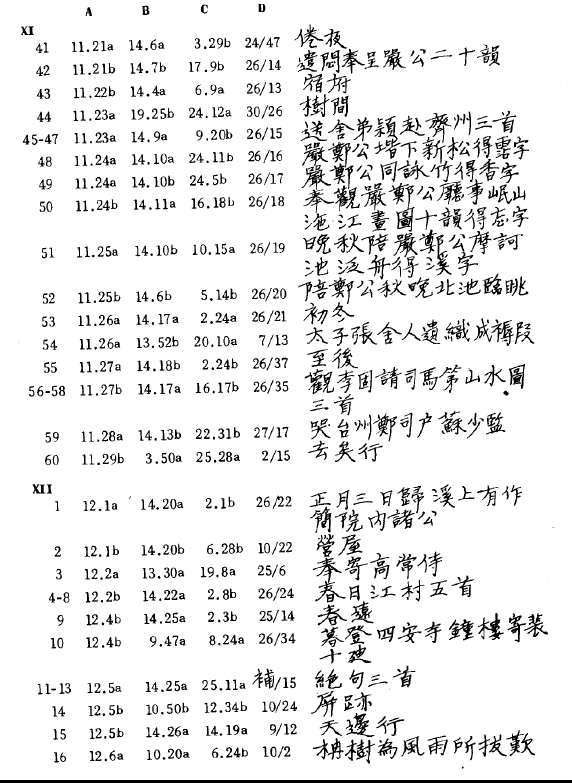 A B C D
XI
41 11.21a 14.6a 3.29b 24/47 倦夜
42 11.21b 14.7b 17.9b 26/14 遣悶奉呈嚴公二十韻
43 11.22b 14.4a 6.9a 26/13 宿府
44 11.23a 19.25b 24.12a 30/26 樹間
45-47 11.23a 14.9a 9.20b 26/15 送舍弟穎赴齊州三首
48 11.24a 14.10a 24.11b 26/16 嚴鄭公堦下新松得霑字
49 11.24a 14.10b 24.5b 26/17 嚴鄭公同詠竹得香字
50 11.24b 14.11a 16.18b 26/18 奉觀嚴鄭公廳事岷山
沲江畫圖十韻得忘字
51 11.25a 14.10b 10.15a 26/19 晚秋陪嚴鄭公摩訶
池泛舟得溪字
52 11.25b 14.6b 5.14b 26/20 陪鄭公秋晚北池臨眺
53 11.26a 14.17a 2.24a 26/21 初冬
54 11.26a 13.52b 20.10a 7/13 太子張舍人遺織成褥段
55 11.27a 14.18b 2.24b 26/37 至後
56-58 11.27b 14.17a 16.17b 26/35 觀李固請司馬第山水圖
三首
59 11.28a 14.13b 22.31b 27/17 哭台州鄭司户蘇少監
60 11.29b 3.50a 25.28a 2/15 去矣行
XII
1 12.1a 14.20a 2.1b 26/22 正月三日歸溪上有作
簡院內諸公
2 12.1b 14.20b 6.28b 10/22 營屋
3 12.2a 13.30a 19.8a 25/6 奉寄高常侍
4-8 12.2b 14.22a 2.8b 26/24 春日江村五首
9 12.4b 14.25a 2.3b 25/14 春遠
10 12.4b 9.47a 8.24a 26/34 暮登四安寺鐘樓寄裴
十迪
11-13 12.5a 14.25a 25.11a 補/15 絕句三首
14 12.5b 10.50b 12.34b 10/24 屏跡
15 12.5b 14.26a 14.19a 9/12 天邊行
16 12.6a 10.20a 6.24b 10/2 柟樹為風雨所拔歎